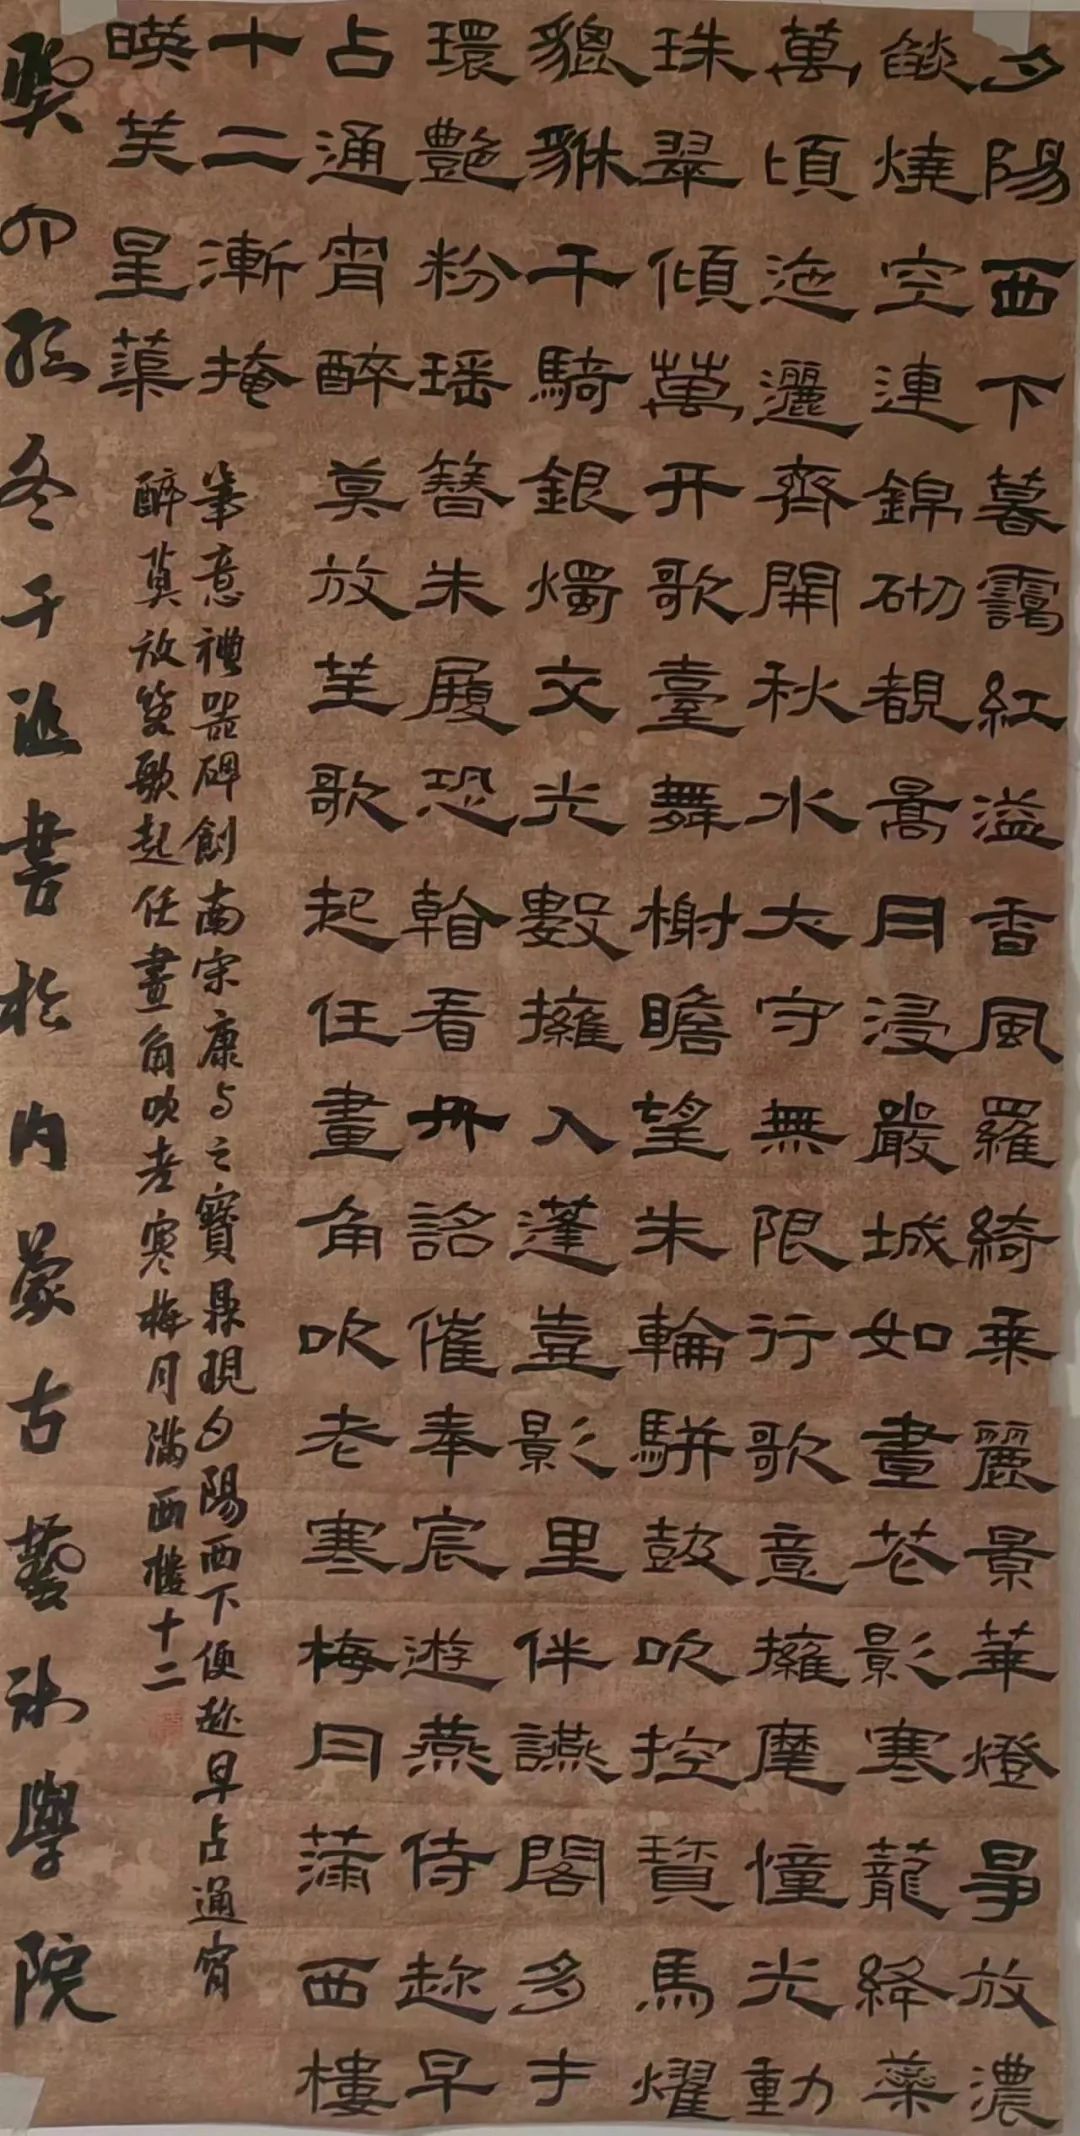 夕陽西下暮靄紅溢香風羅綺乘麗景華燈爭放濃
燄燒空連錦砌覩高月浸嚴城如畫花影寒蘢絳蘂
萬頃迤邐齊開秋水大守無限行歌意擁麾憧光動
珠翠傾萬井歌臺舞榭瞻望朱輪駢鼓吹控寶馬耀
貔貅千騎銀燭交光數擁入蓬壺影里伴讌閣多才
環艷粉瑶簪朱履恐看丹詔催奉宸遊燕侍趂早
占通宵醉莫放笙歌起任畫角吹老寒梅月滿西樓
十二漸掩
暎芙星蕖
筆意禮器碑創南宋康与之寶鼎現夕陽西下便趂早占通宵
醉莫放笙歌起任畫角吹老寒梅月滿西樓十二
癸卯冬書於内蒙古藝術學院